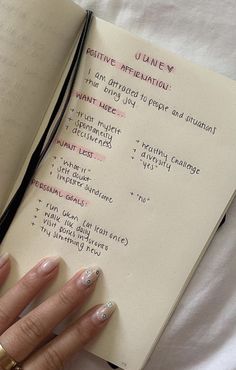 JUNE
POSITIVE AFFIRMATION:
I am attracted to people and situations
that bring joy.
WANT MORE...
+ trust myself
+ spontaneity
+ decisiveness
+ healthy challenge
+ diversity
+ "yes"
WANT LESS...
+ "what if"
+ self doubt
+ imposter syndrome
+ "no"
PERSONAL GOALS:
+ run 10km (at least once)
+ walk 10k daily
+ visit parks in toronto
+ try something new